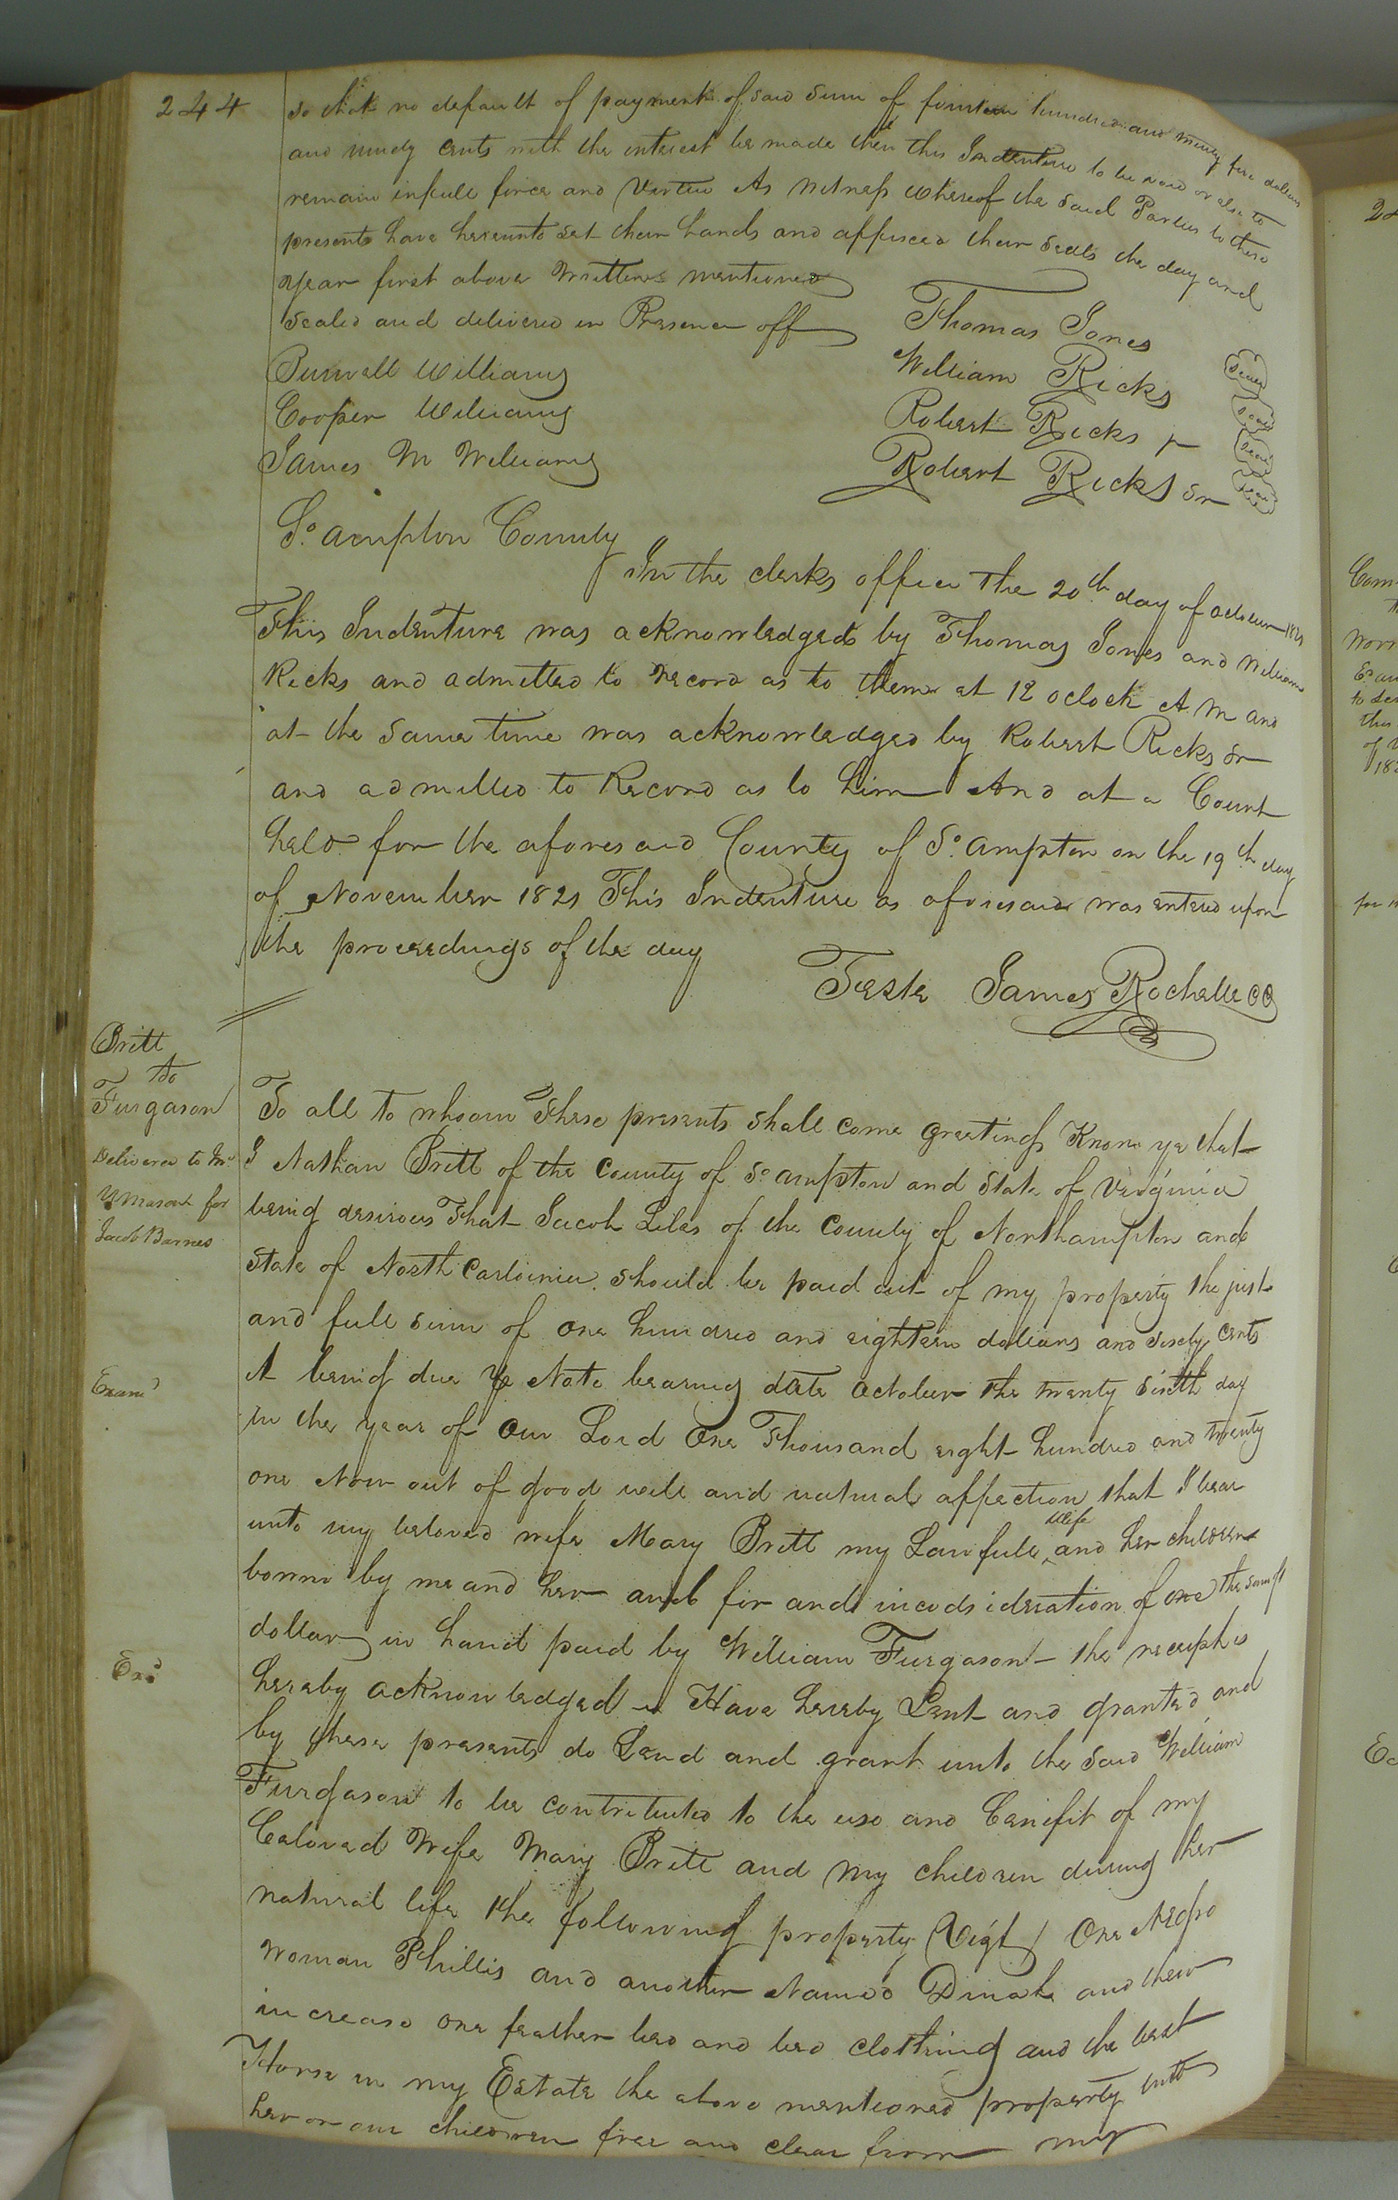 244
so that no default of payment of said sum of fourteen hundred and ninety five dollars
and ninety cents with the interest be made then this Indenture to be void or else to
remain in full force and Vertue As Witness Whereof the said Parties to these
presents have hereunto set their hands and affixed their seals the day and
year first above Written mentioned
Sealed and delivered in Presence off
Thomas Jones
Burwell Williams
William Ricks
Seal
Cooper Williams
Robert Ricks jr
Seal
James M Williams
Robert Ricks Sr
Seal
Seal
So. ampton County
In the clerks office the 20th day of october 1821
This Indenture was acknowledged by Thomas Jones and William
Ricks and admitted to record as to them at 12 oclock A M and
at the same time was acknowledged by Robert Ricks Sr
and admitted to Record as to him And at a Court
held for the aforesaid County of So. ampton on the 19th day
of November 1821 This Indenture as aforesaid was entered upon
the proceedings of the day
Teste James Rochelle CC
Britt
To
Furgason
Delivered to Mr
Mason for
Jacob Barnes
Exam'd
Exd
To all to whom These presents shall come greetings Know ye that
I Nathan Britt of the County of So ampton and State of Virginia
being desirous That Jacob Liles of the County of Northampton and
State of North Carloinia should be paid out of my property the just
and full sum of one hundred and eighteen dollars and sixty cents
It being due pr Note bearing date october the twenty sixth day
in the year of our Lord One Thousand eight hundred and twenty
one Now out of good will and natural affection that I bear
unto my beloved wife Mary Britt my Lawfull wife and her children
borne by me and her and for and incodsideration of one the sum of
dollar in hand paid by William Furgason the receipt is
hereby acknowledged Have hereby Lent and granted and
by these presents do Lend and grant unto the said William
Furgason to be contributed to the use and benifit of my
beloved Wife Mary Britt and my children during her
natural life the following property (Vizt) One Negro
woman Phillis and another Named Dinah and their
increase one feather bed and bed clothing and the best
Horse in my Estate the above mentioned property unto
her or our children free and clear from my